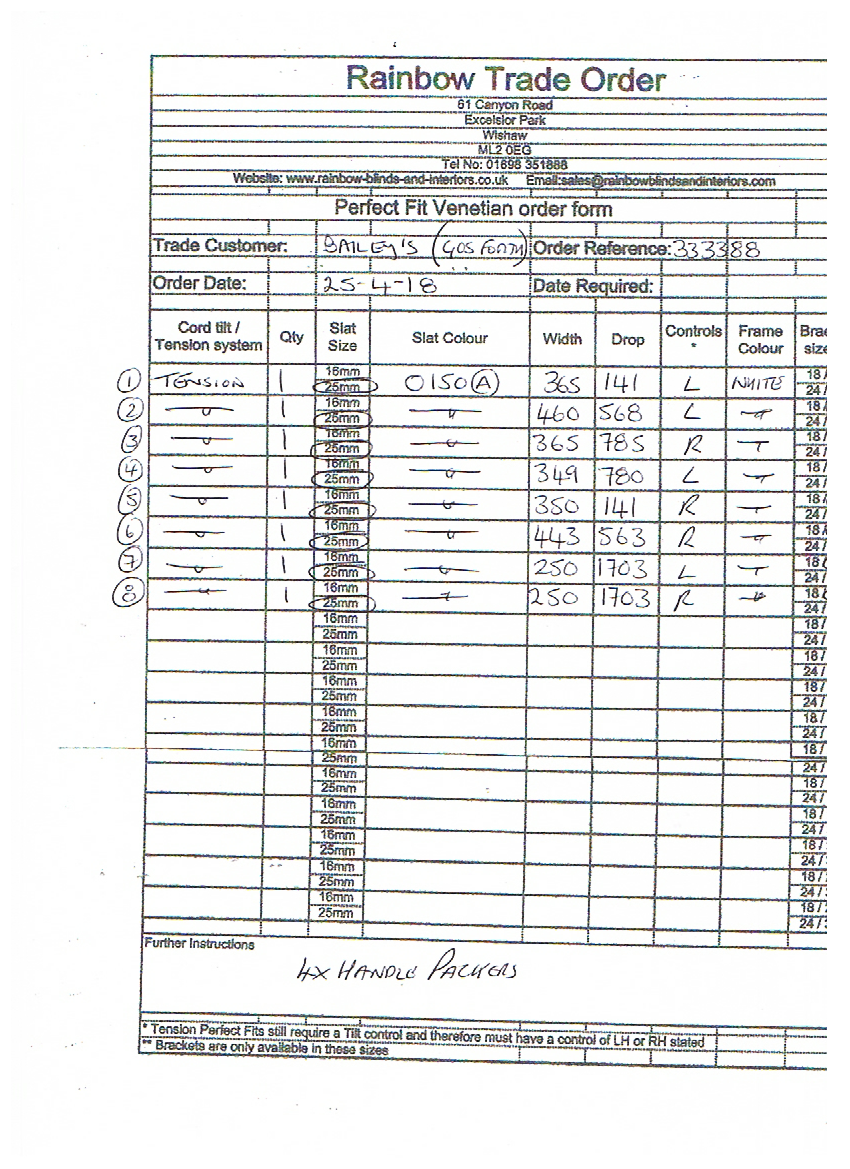 Rainbow Trade Order
61 Canyon Road
Excelsior Park
Wishaw
ML2 0EG
Tel No: 01698 351888
Website: www.rainbow-blinds-and-interiors.co.uk Email:sales@rainbowblindsandinteriors.com
Perfect Fit Venetian order form
Trade Customer: BAILEY'S Order Reference: 333388
Order Date: 25-4-18 Date Required:
Cord tilt / Tension system Qty Slat Size Slat Colour Width Drop Controls * Frame Colour
1 TENSION 1 16mm 25mm 0150 A 365 141 L WHITE 18/ 24/
2 —"— 1 16mm 25mm —"— 460 568 L —"— 18/ 24/
3 —"— 1 16mm 25mm —"— 365 785 R —"— 18/ 24/
4 —"— 1 16mm 25mm —"— 349 780 L —"— 18/ 24/
5 —"— 1 16mm 25mm —"— 350 141 R —"— 18/ 24/
6 —"— 1 16mm 25mm —"— 443 563 R —"— 18/ 24/
7 —"— 1 16mm 25mm —"— 250 1703 L —"— 18/ 24/
8 —"— 1 16mm 25mm —"— 250 1703 R —"— 18/ 24/
16mm 25mm 18/ 24/
16mm 25mm 18/ 24/
16mm 25mm 18/ 24/
16mm 25mm 18/ 24/
16mm 25mm 18/ 24/
16mm 25mm 18/ 24/
16mm 25mm 18/ 24/
16mm 25mm 18/ 24/
16mm 25mm 18/ 24/
16mm 25mm 18/ 24/
Further Instructions
4X HANDLE PACKERS
* Tension Perfect Fits still require a Tilt control and therefore must have a control of LH or RH stated
** Brackets are only available in these sizes